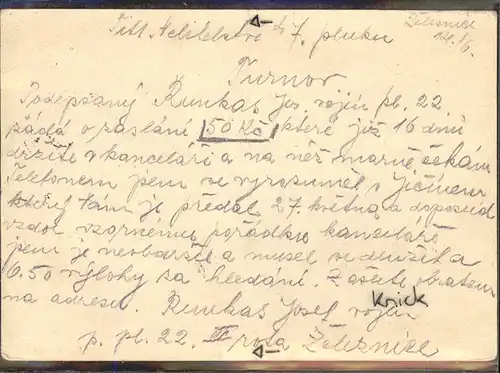 Železnice
14./6.
Titl. Velitelství 7. pluku
Turnov
Podepsaný Runkas Jos. vojín pl. 22
žádá o zaslání 50 Kč které již 16 dnů
držíte v kanceláři a na něž marně čekám
Telefonem jsem se vyrozuměl s Jičínem
který tam je předal 27. května a doposud
vzdor vzornému pořádku kanceláře
jsem je neobdržel a musel se dlužit a
6.50 výlohy za hledání. Zašlete obratem
na adresu. Runkas Josef vojín
Knick
p. pl. 22. III rota Železnice